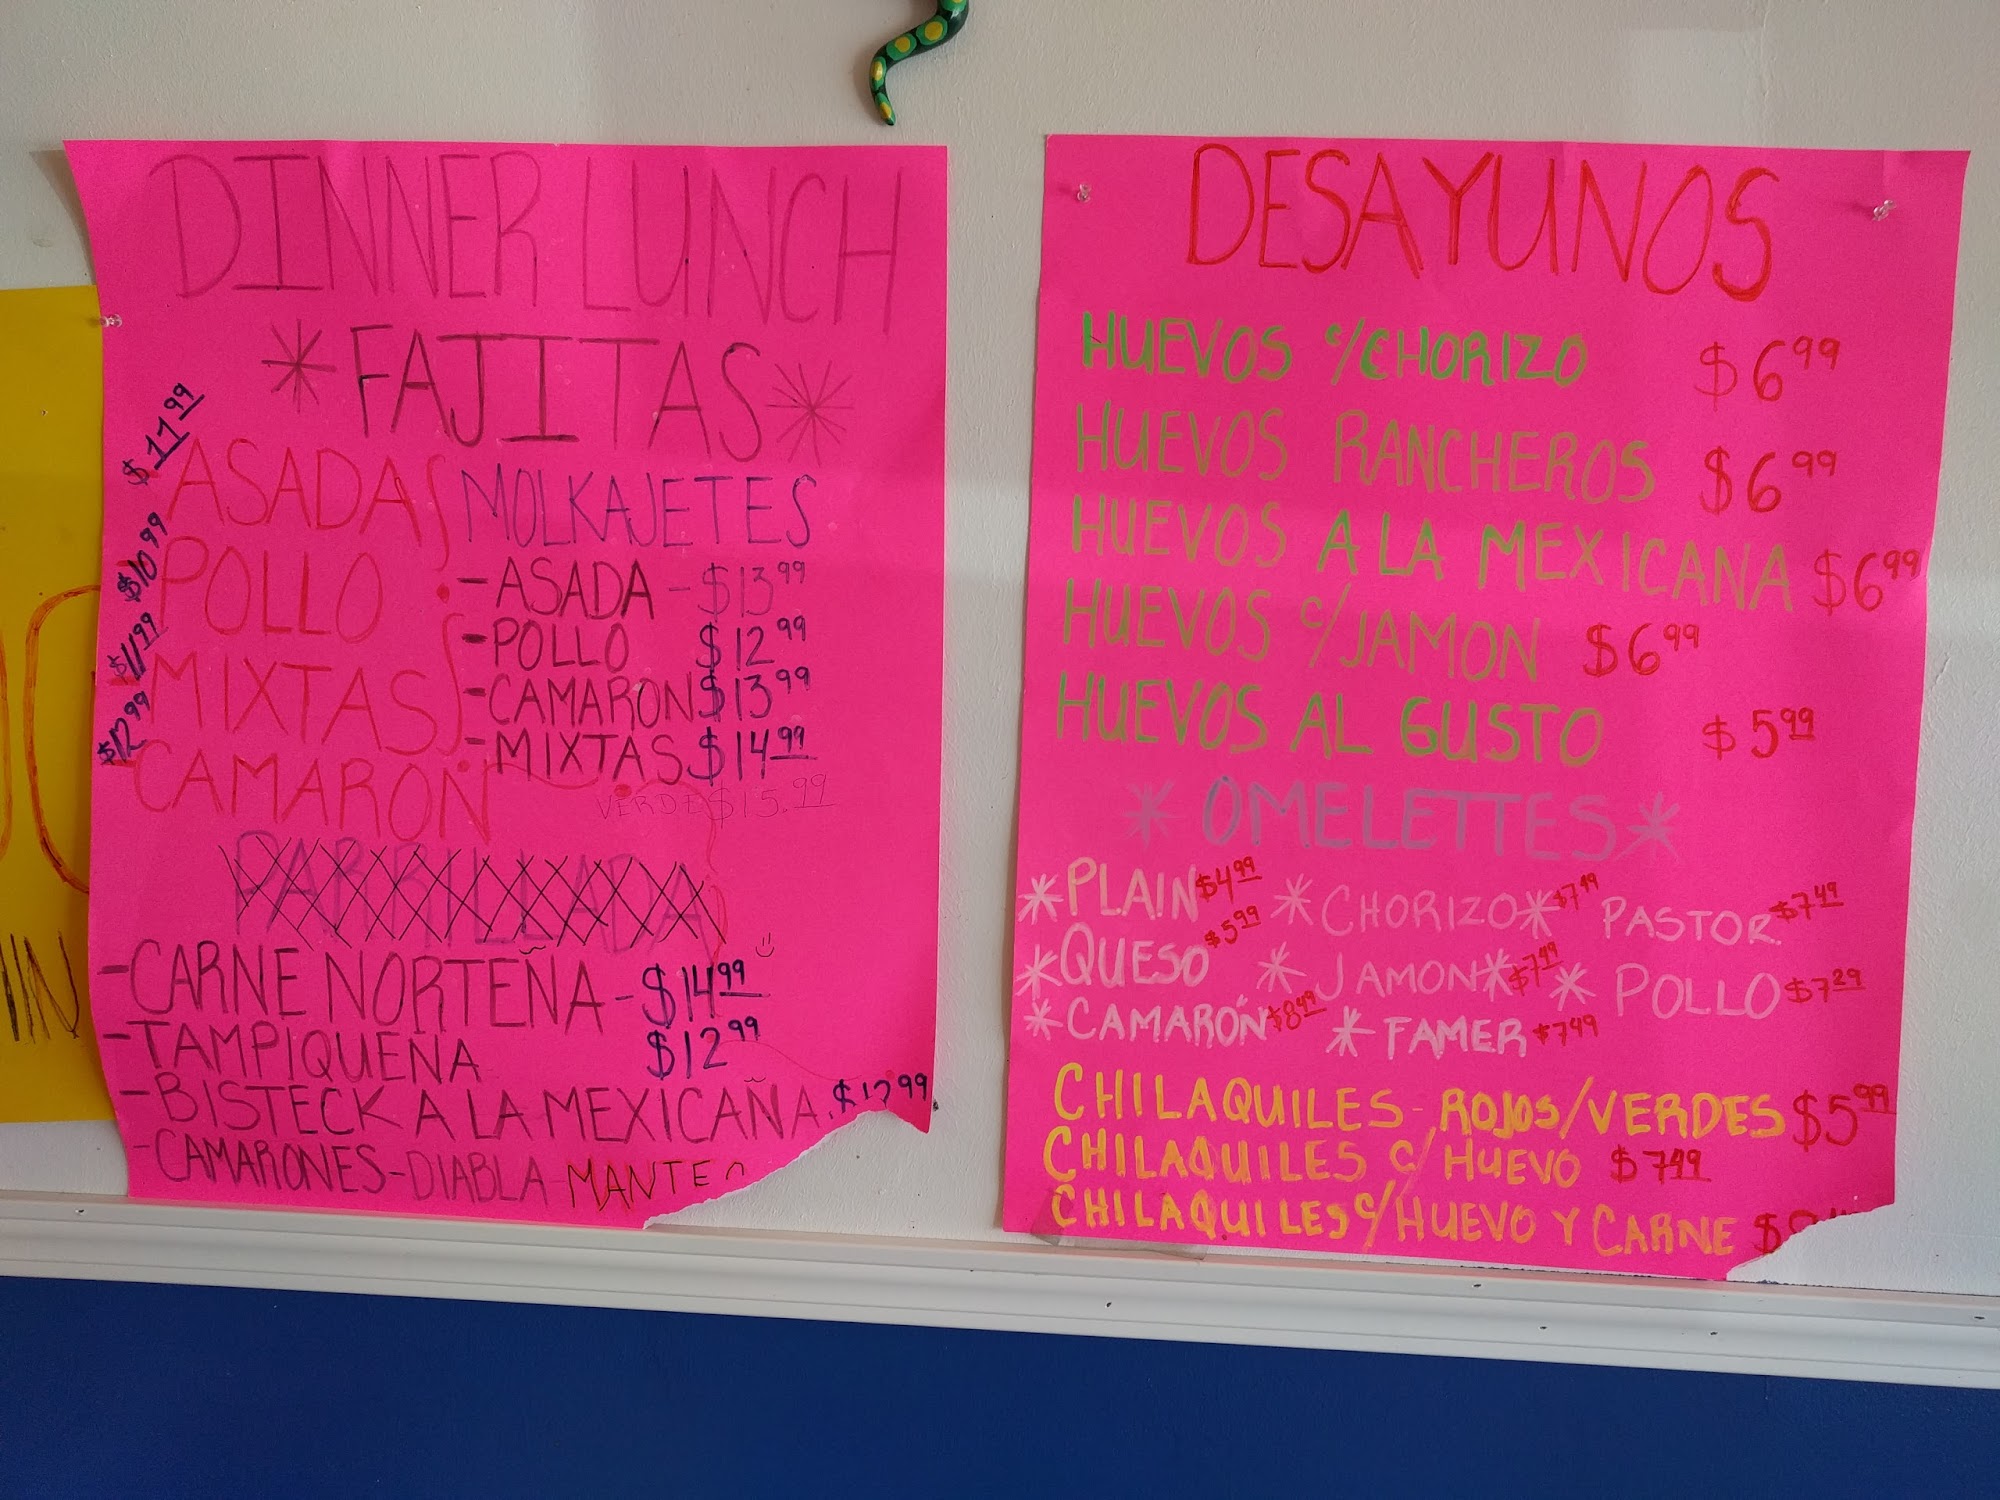 DINNER LUNCH
*FAJITAS*
ASADA $11.99
POLLO $10.99
MIXTAS $11.99
CAMARON $12.99
MOLKAJETES
-ASADA - $13.99
-POLLO $12.99
-CAMARON $13.99
-MIXTAS $14.99
VERDE $15.99
PARRILLADA
-CARNE NORTEÑA - $14.99
-TAMPIQUEÑA $12.99
-BISTECK A LA MEXICAÑA.
-CAMARONES-DIABLA
DESAYUNOS
HUEVOS c/CHORIZO $6.99
HUEVOS RANCHEROS $6.99
HUEVOS A LA MEXICANA $6.99
HUEVOS c/JAMON $6.99
HUEVOS AL GUSTO $5.99
*OMELETTES*
*PLAIN $4.99 *CHORIZO* $7.49 PASTOR. $7.49
*QUESO $5.99 *JAMON* $7.49 *POLLO $7.29
*CAMARON $8.49 *FAMER $7.49
CHILAQUILES-ROJOS/VERDES $5.99
CHILAQUILES c/HUEVO $7.49
CHILAQUILES c/HUEVO Y CARNE